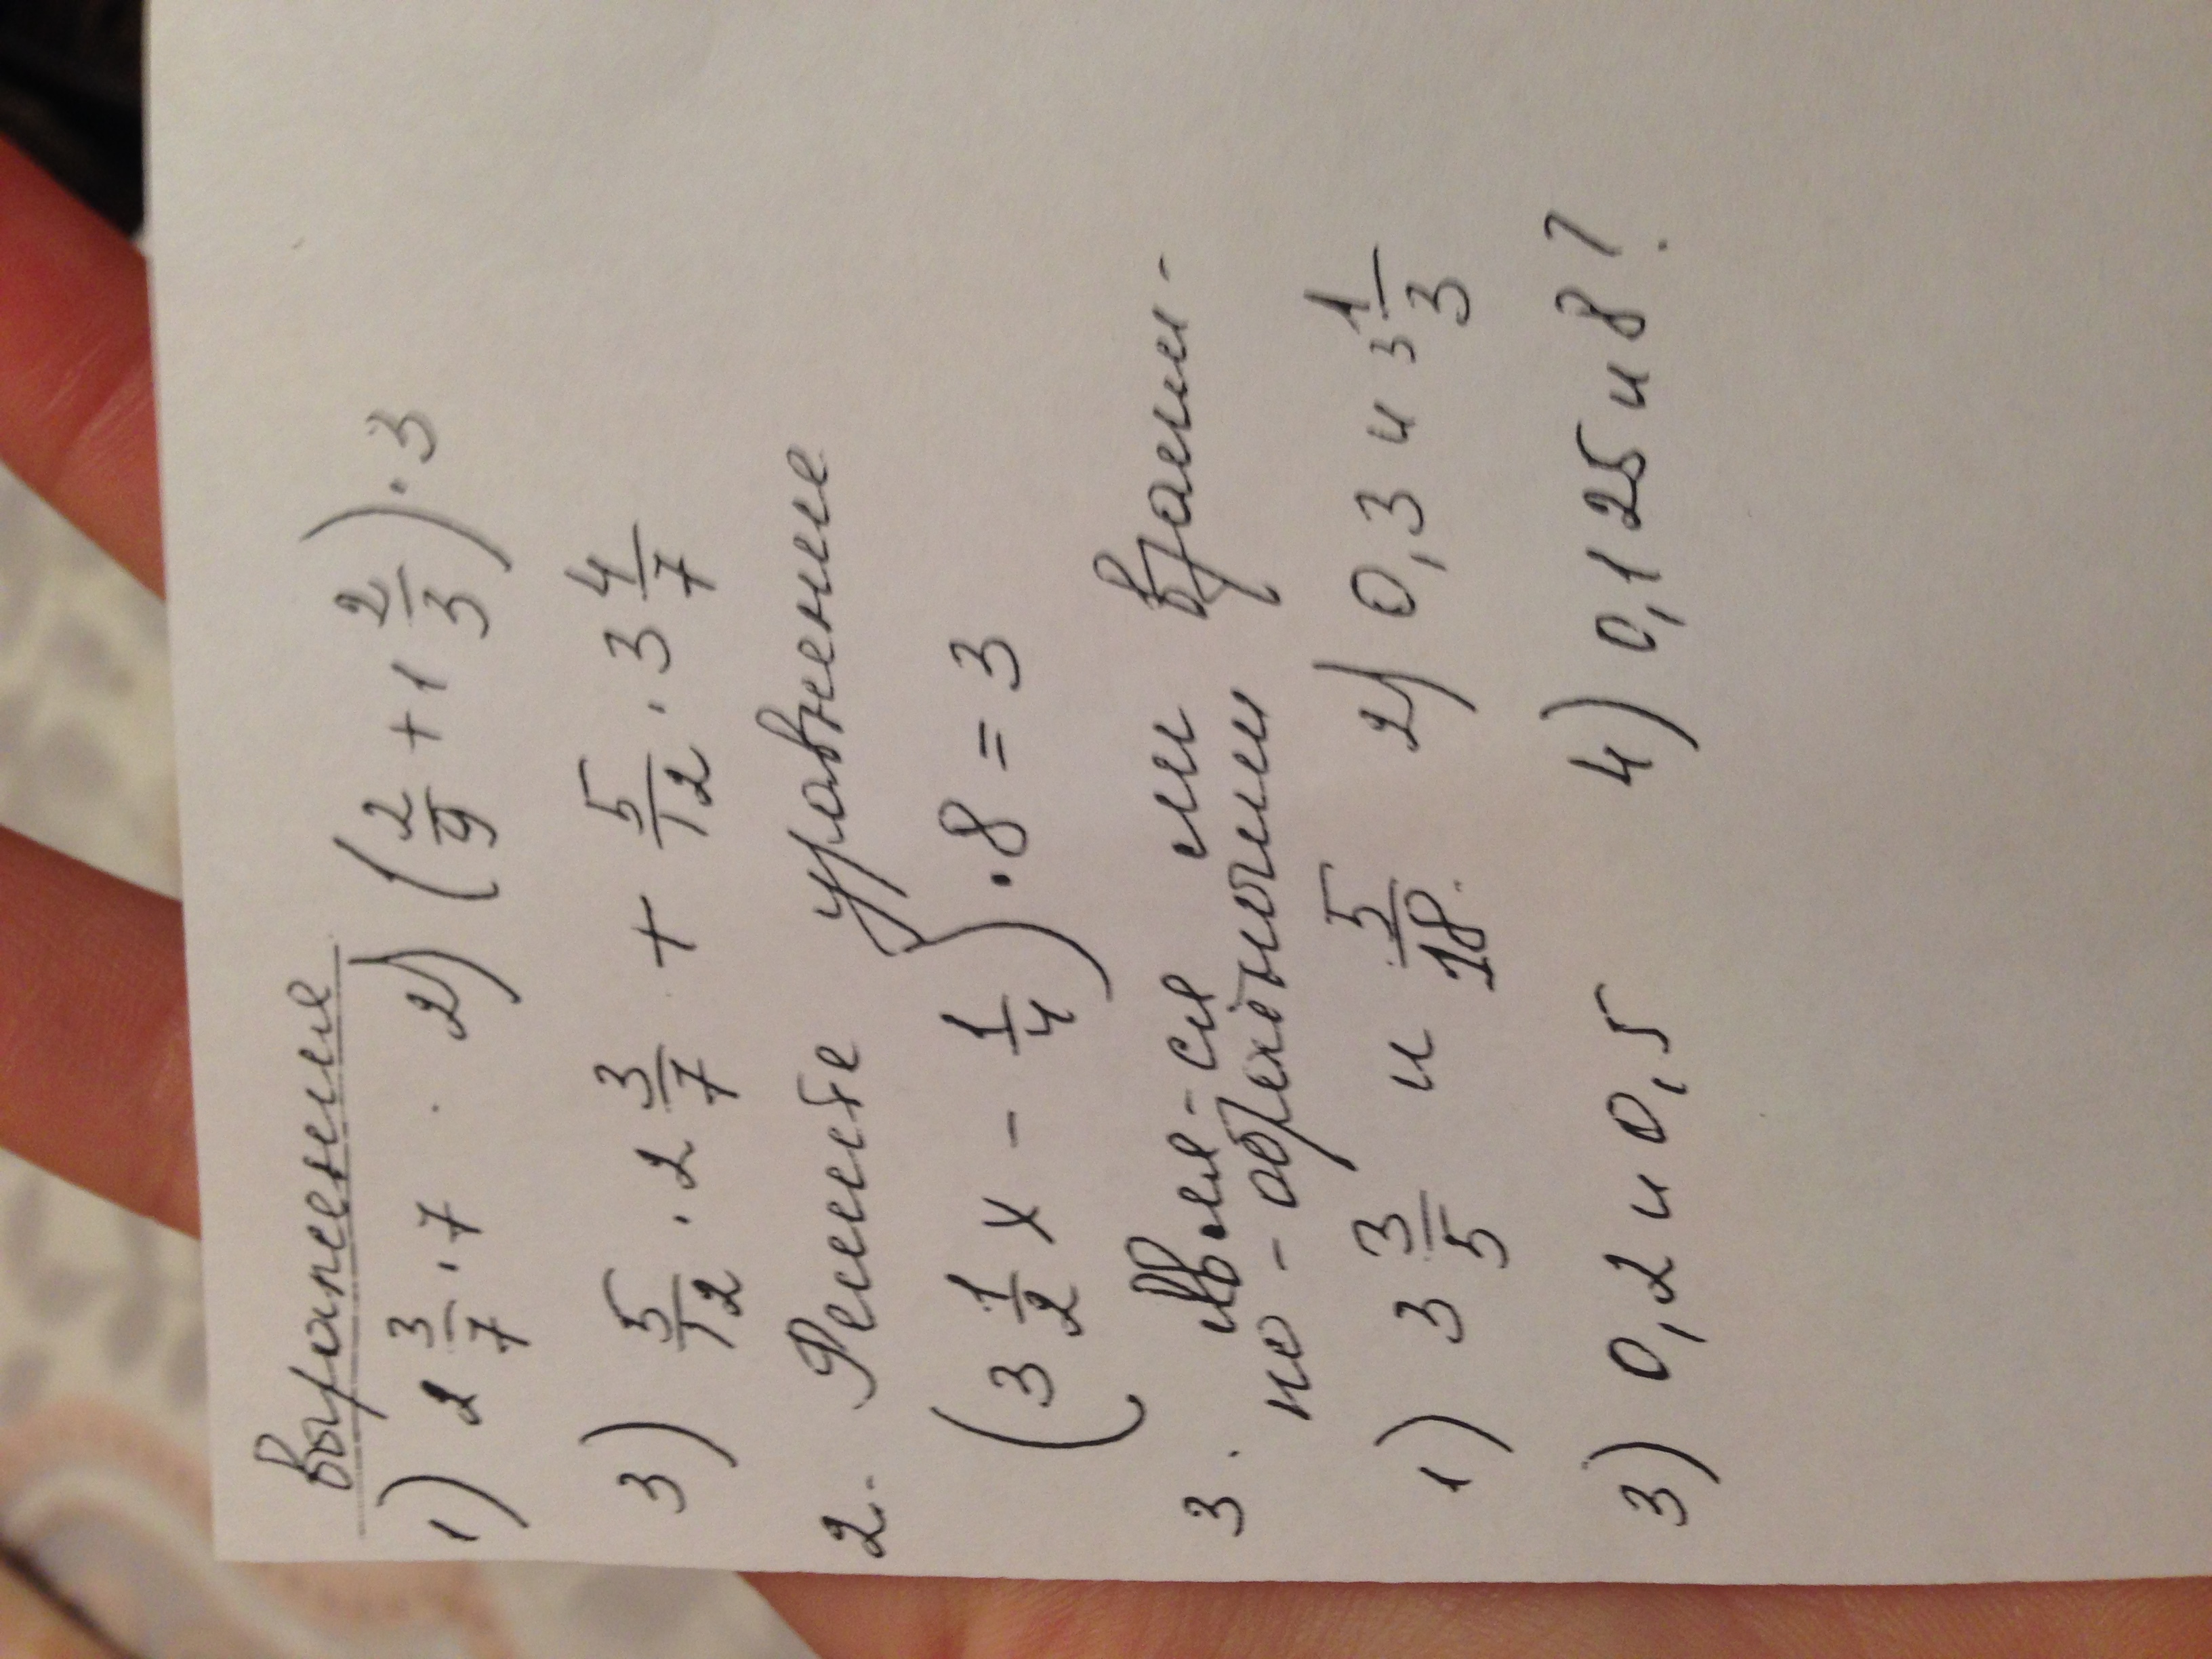 выражения
1) 2 3/7 · 7 2) (2/9 + 1 2/3) · 3
3) 5/12 · 2 3/7 + 5/12 · 3 4/7
2. Решите уравнение
(3 1/2 x - 1/4) · 8 = 3
3. Явля-ся ли взаим-
но - обратными
1) 3 3/5 и 5/18 2) 0,3 и 3 1/3
3) 0,2 и 0,5 4) 0,125 и 8?